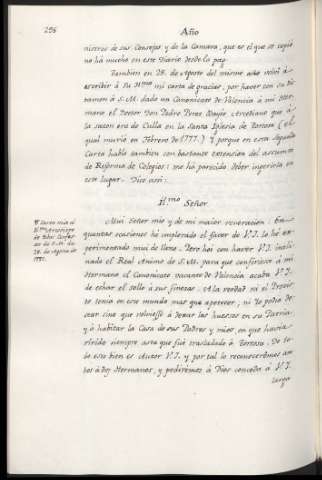 256
Año
nistros de sus Consejos y de la Camara, que es el que se copió
no ha mucho en este Diario desde la pag.
Tambien en 28. de Agosto del mismo año volví à
escribir à Su Ilma. mi carta de gracias, por haver con su dic-
tamen à S.M. dado un Canonicato de Valencia à mi Her-
mano el Doctor Don Pedro Perez Bayer Arcediano que à
la sazon era de Culla en la Santa Iglesia de Tortosa (el
qual murió en Febrero de 1777.) Y porque en esta segunda
Carta hablo tambien con bastante extension del assumto
de Reforma de Colegios; me ha parecido deber ingerirla en
este lugar. Dice assi:
Ilmo. Señor
Carta mia al
Ilmo Arzobispo
de Tebas Confes-
or de S.M. de
28. de Agosto de
1771.
Mui Señor mio y de mi maior veneracion: En
quantas ocasiones he implorado el favor de V.I. lo hé ex-
perimentado mui de lleno. Pero hoi con haver V.I. incli-
nado el Real Animo de S.M. para que confiriese à mi
Hermano el Canonicato vacante de Valencia acaba V.I.
de echar el sello à sus finezas. A la verdad ni el Provis-
to tenia en este mundo mas que apetecer, ni Yo podia de-
sear sino que volviesse à dexar los huessos en su Patria,
y à habitar la Casa de sus Padres y mios, en que havia
vivido siempre hasta que fué trasladado à Tortosa. De to-
do este bien es Autor V.I. y por tal lo reconoceremos am-
bos à dos Hermanos, y pedirémos à Dios conceda à V.I.
larga